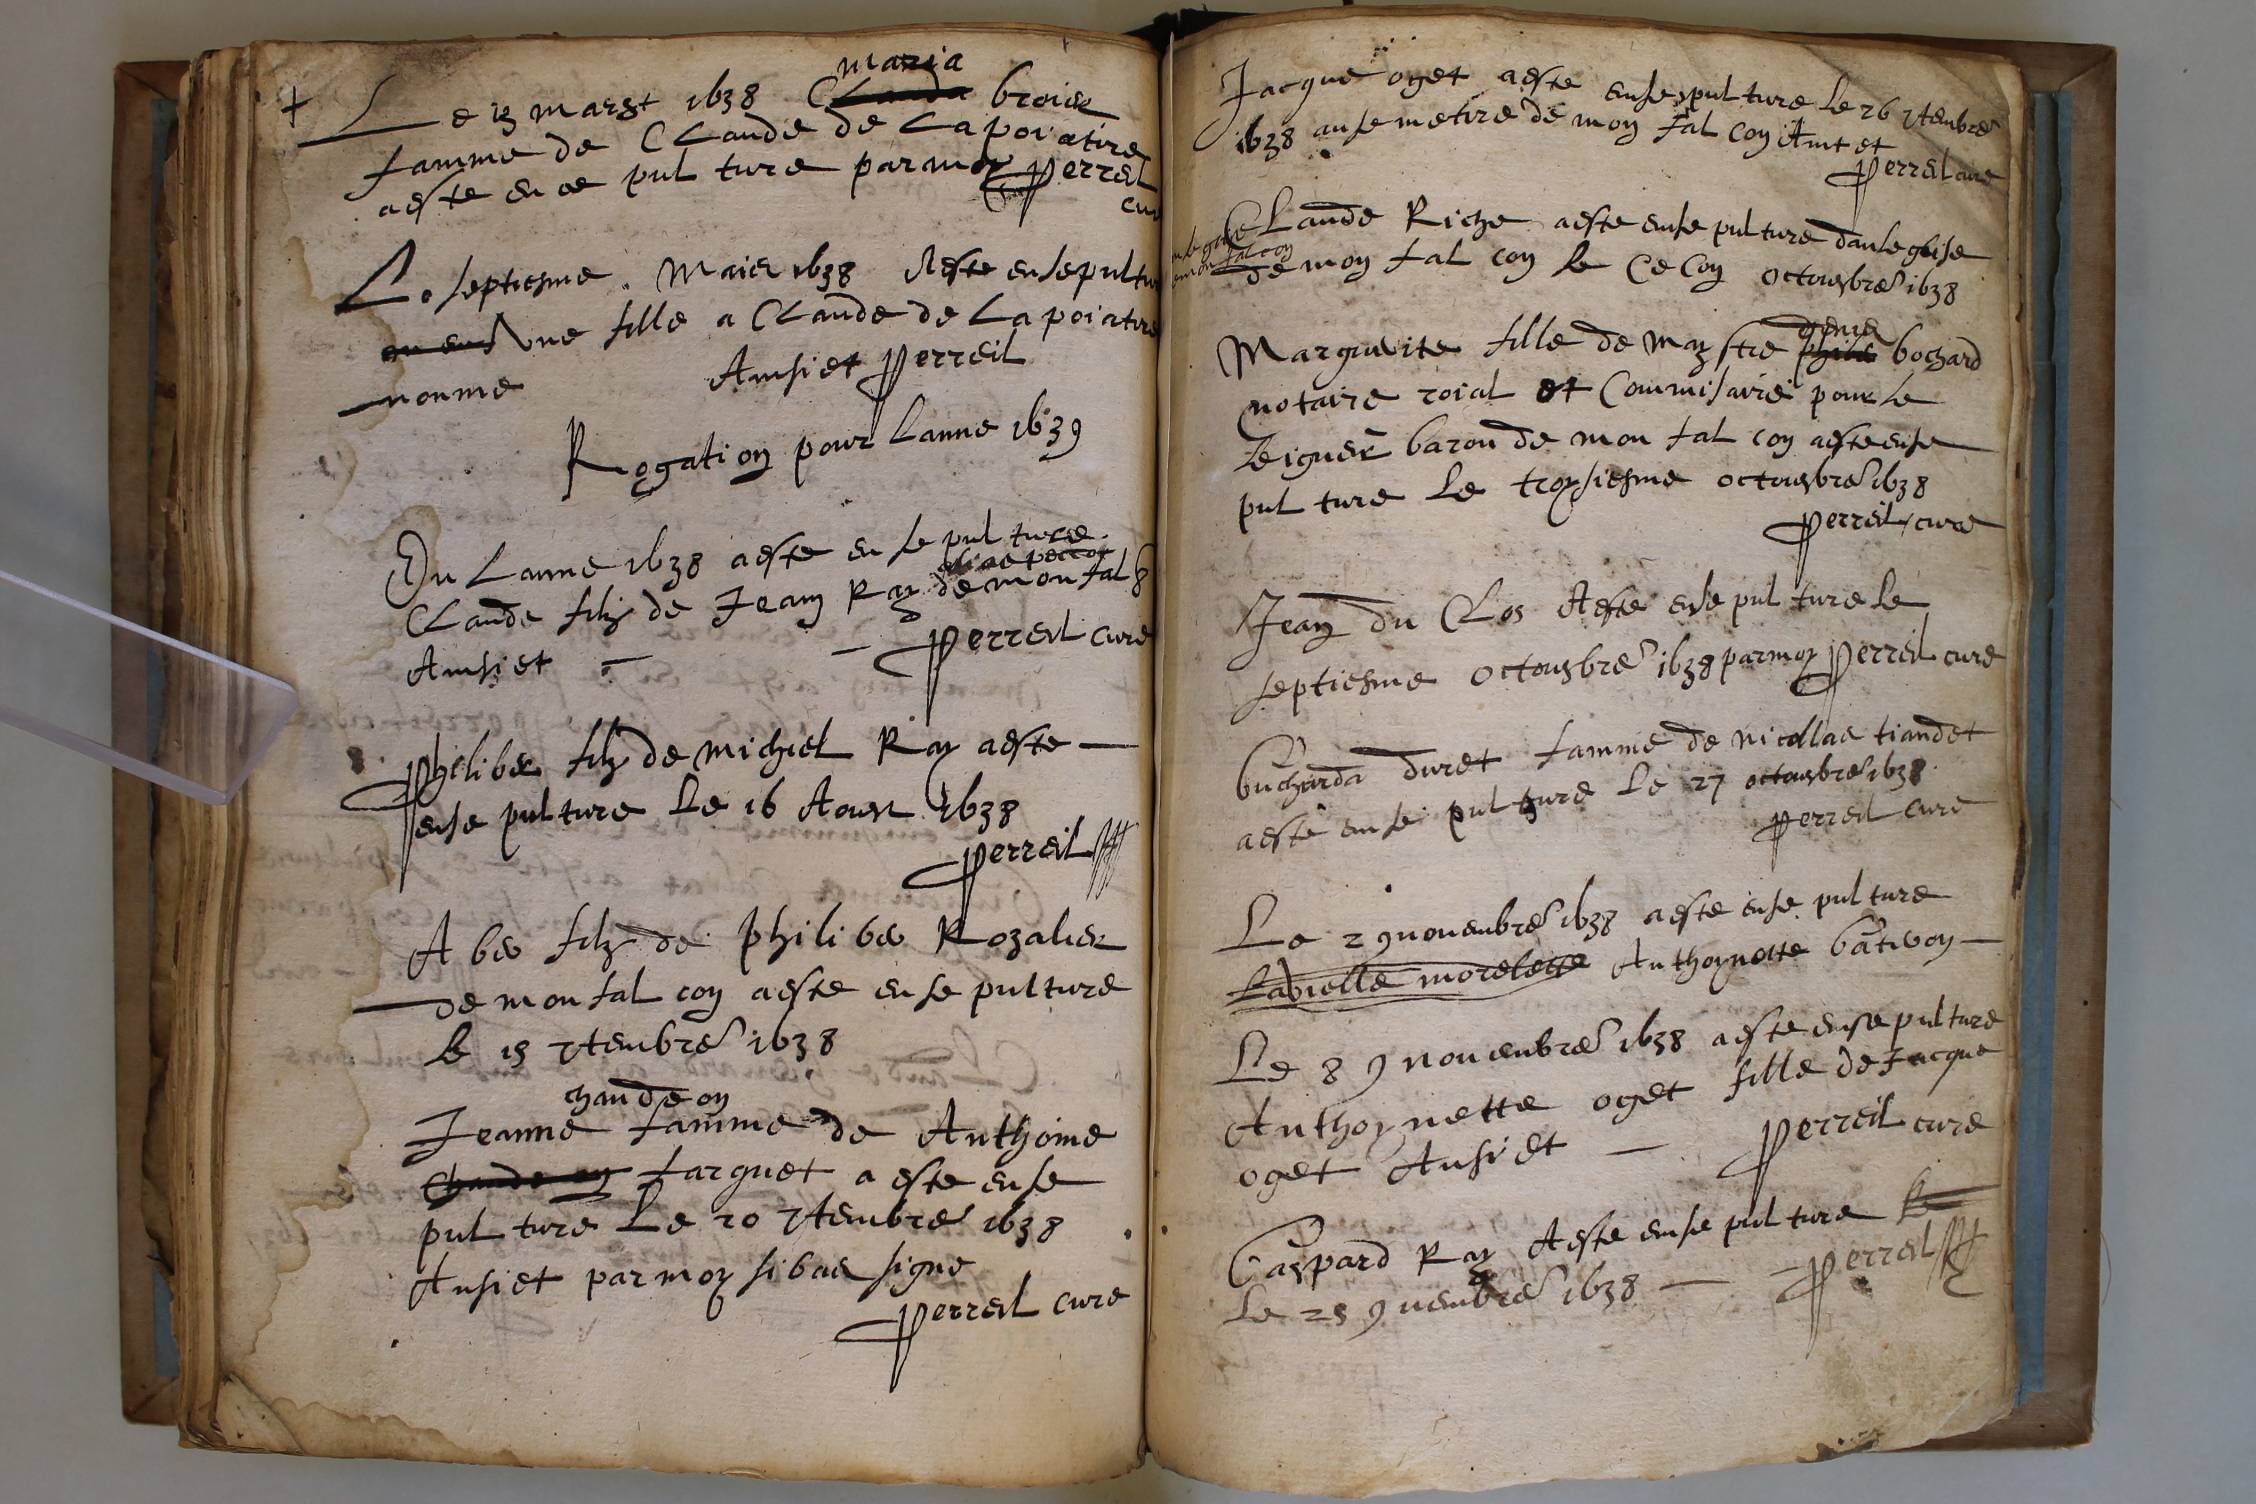 maria
Le 13 marst 1638 Clauda broier
famme de Claude de Lapoiatire
aeste en ce pul ture par moy Perreil
cur
Le septiesme Maier 1638 Aeste ensepultu
une fille a Claude de Lapoiatire
nonme Ainsiet Perreil
Rogation pour Lanne 1639
En Lanne 1638 aeste en se pul ture
Claude filz de Jean Ray de mon fal
Ainsiet Perreil cure
Philiber filz de michiel Ray aeste
ense pulture Le 16 Aoust 1638
Perreil
Abei filz de philiber Rozalier
de mon fal con aeste en se pulture
le 15 7tembre 1638
chaudeon
Jeanne famme de Anthoine
Chaudeon farguet a este en se
pul ture Le 20 7tembre 1638
Ainsiet par moy si bas signe
Perreil cure
Jacque oget aeste ensepulture Le 26 7tembre
1638 au semetire de mon fal con Ainsiet
Perreil cure
Claude Riche aeste ense pulture dans leglise
de mon fal con le Ce Con octousbre 1638
Marguerite fille de maystre denis bochard
notaire roial et Commisaire pour le
seigneur baron de mon fal con aeste ense
pul ture Le troysiesme octousbre 1638
Perreil cure
Jean du Clos Aeste ense pul ture le
septiesme octousbre 1638 par moy Perreil cure
bucharda duret famme de nicollas tiaudet
aeste en se pulture le 27 octousbre 1638
Perreil cure
Le 29 nouenbre 1638 aeste ense pulture
Labielle morelette Anthoynette
Le 8 9 nouenbre 1638 aeste ense pulture
Anthoynette oget fille de Jacque
oget Ainsiet Perreil cure
Gaspard Ray Aeste ense pul ture le
Le 25 9uenbre 1638 Perreil